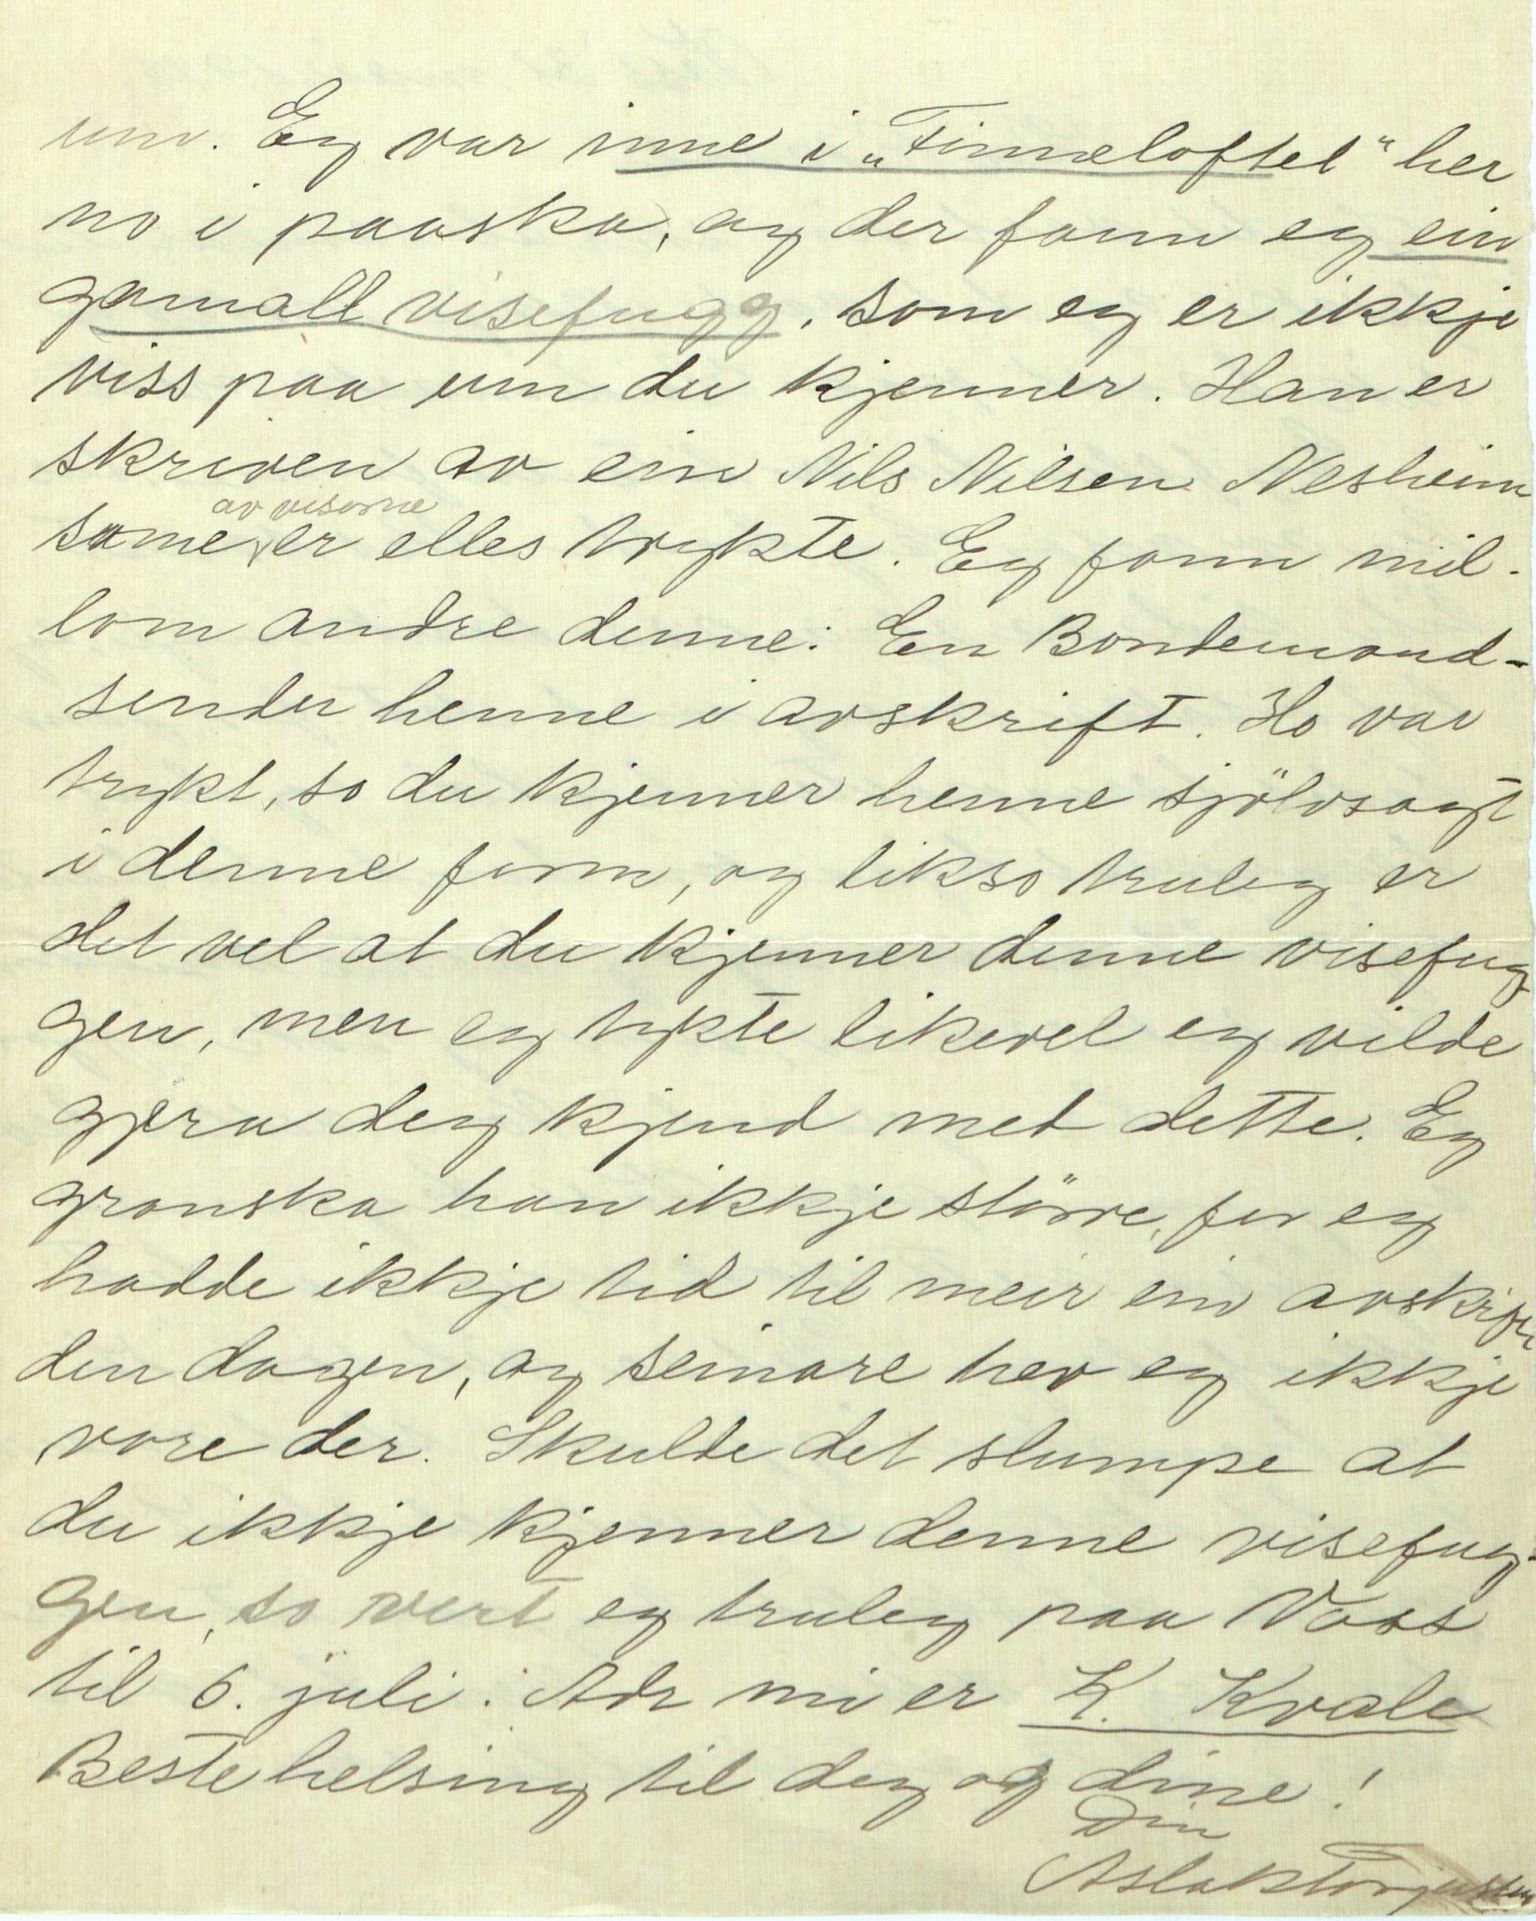 um. Eg var inne i „Finneloftet" her
no i paaska, og der fann eg ein
gamall visefugg, som eg er ikkje
viss paa um du kjenner. Han er
skriven av ein Nils Nilsen Nesheim
av visorne
some er elles trykte. Eg fann mil-
lom andre denne: En Bondemand-
sender henne i avskrift. Ho var
trykt, so du kjenner henne sjölvsagt
i denne form, og likso truleg er
det vel at du kjenner denne visefug-
gen, men eg tykte likevel eg vilde
gjera deg kjend med dette. Eg
granska han ikkje större, for eg
hadde ikkje tid til meir ein avskrifti
den dagen, og seinare hev eg ikkje
vore der. Skulde det slumpe at
du ikkje kjenner denne visefug-
gen, so vert eg truleg paa Voss
til 6. juli. Adr mi er K. Kvale
Beste helsing til deg og dine!
Din
Aslak Torjusson